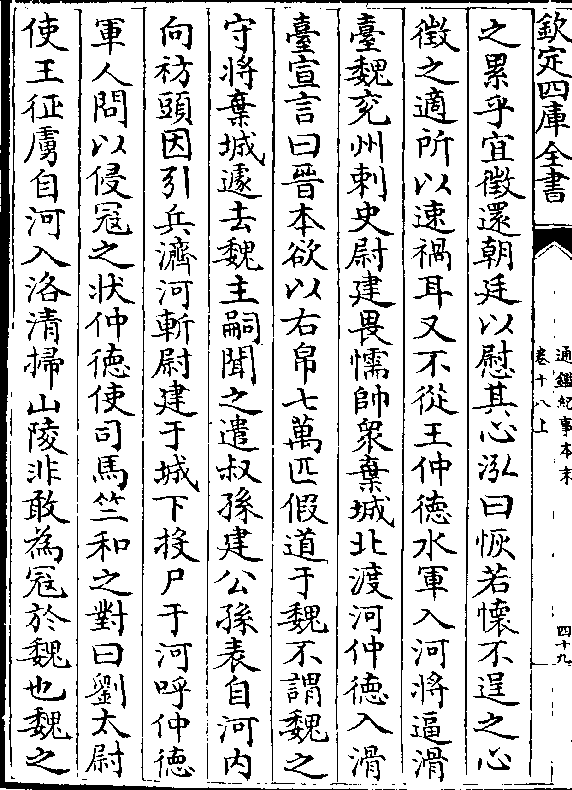 欽定四庫全書
通鑑紀事本末
卷十八上
四十九
之累乎宜徵還朝廷以慰其心泓曰恢若懷不逞之心
徵之適所以速禍耳又不從王仲德水軍入河將逼滑
臺魏兖州刺史尉建畏懦帥衆棄城北渡河仲德入滑
臺宣言曰晉本欲以布帛七萬匹假道于魏不謂魏之
守將棄城遽去魏主嗣聞之遣叔孫建公孫表自河内
向枋頭因引兵濟河斬尉建于城下投尸于河呼仲德
軍人問以侵寇之狀仲德使司馬竺和之對曰劉太尉
使王征虜自河入洛清掃山陵非敢為寇於魏也魏之